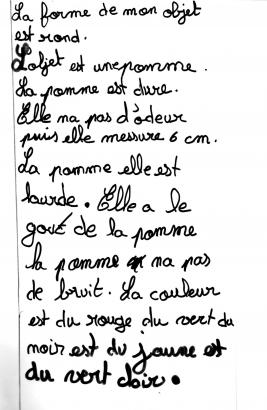 La forme de mon objet
est rond.
L'objet est unepomme.
La pomme est dure.
Elle na pas d'òdeur
puis elle messure 6 cm.
La pomme elle est
lourde. Elle a le
goué de la pomme
la pomme na pas
de bruit. La couleur
est du rouge du vert du
noir est du jaune et
du vert clair.